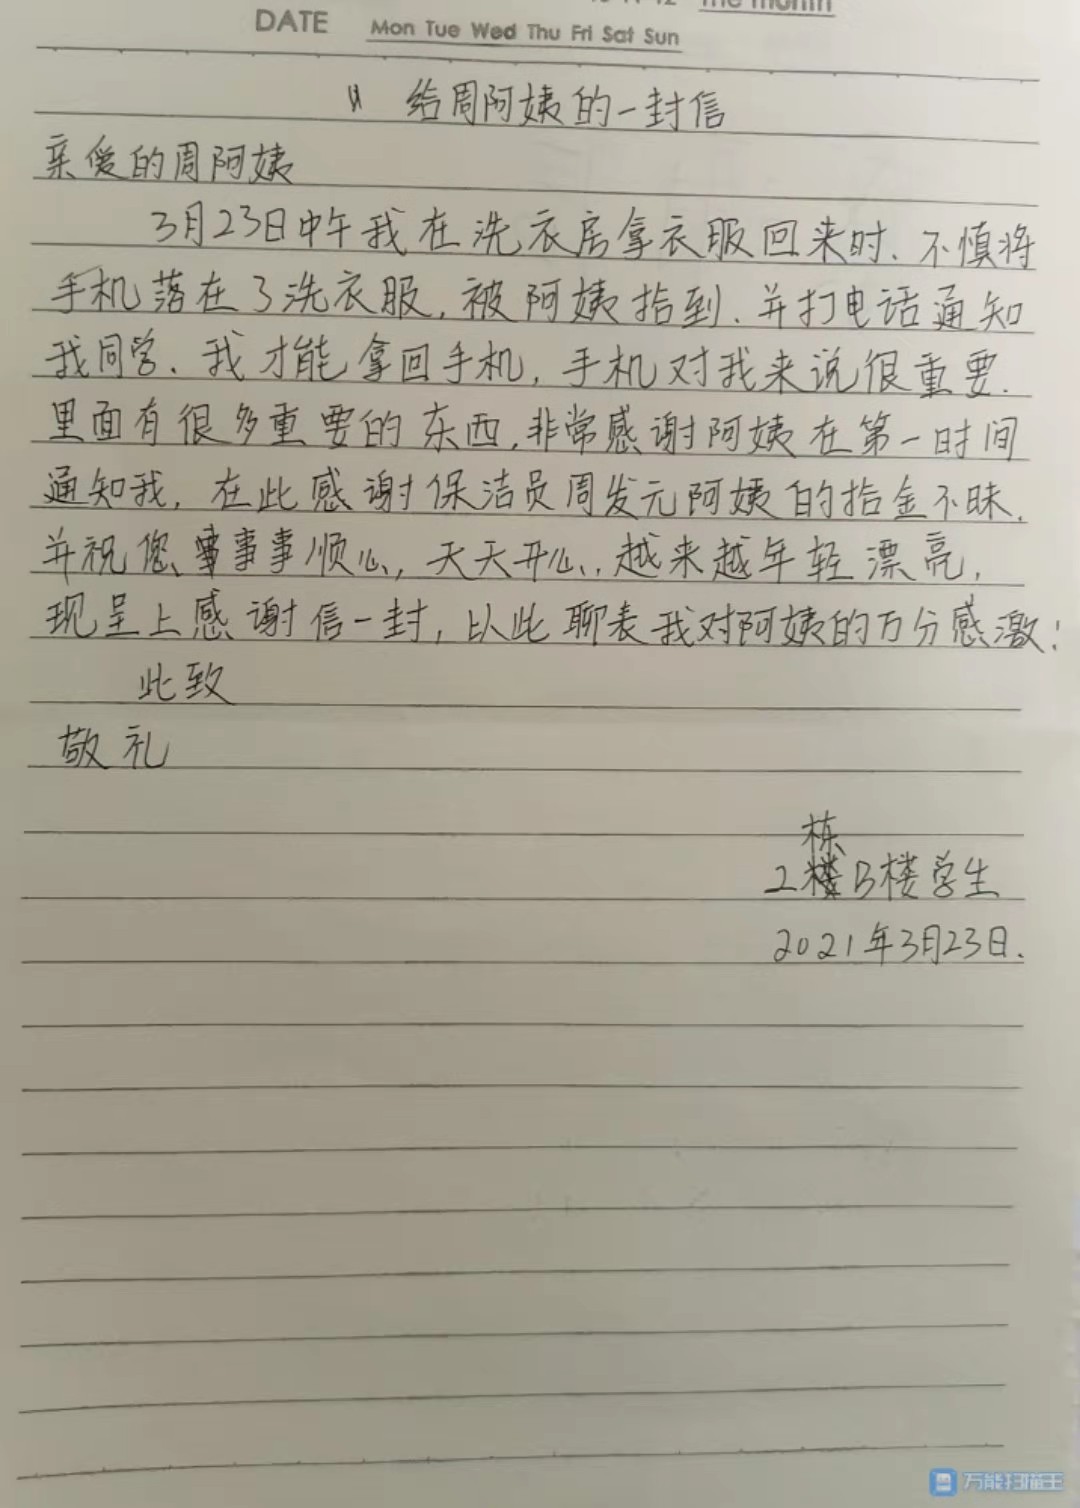 DATE
Mon Tue Wed Thu Fri Sat Sun
给周阿姨的一封信
亲爱的周阿姨
3月23日中午我在洗衣房拿衣服回来时、不慎将
手机落在了洗衣服,被阿姨拾到、并打电话通知
我同学、我才能拿回手机,手机对我来说很重要.
里面有很多重要的东西,非常感谢阿姨在第一时间
通知我,在此感谢保洁员周发元阿姨的拾金不昧.
并祝您、事事顺心,天天开心,越来越年轻漂亮,
现呈上感谢信一封,以此聊表我对阿姨的万分感激!
此致
敬礼
栋
2楼B楼学生
2021年3月23日.
万能扫描王